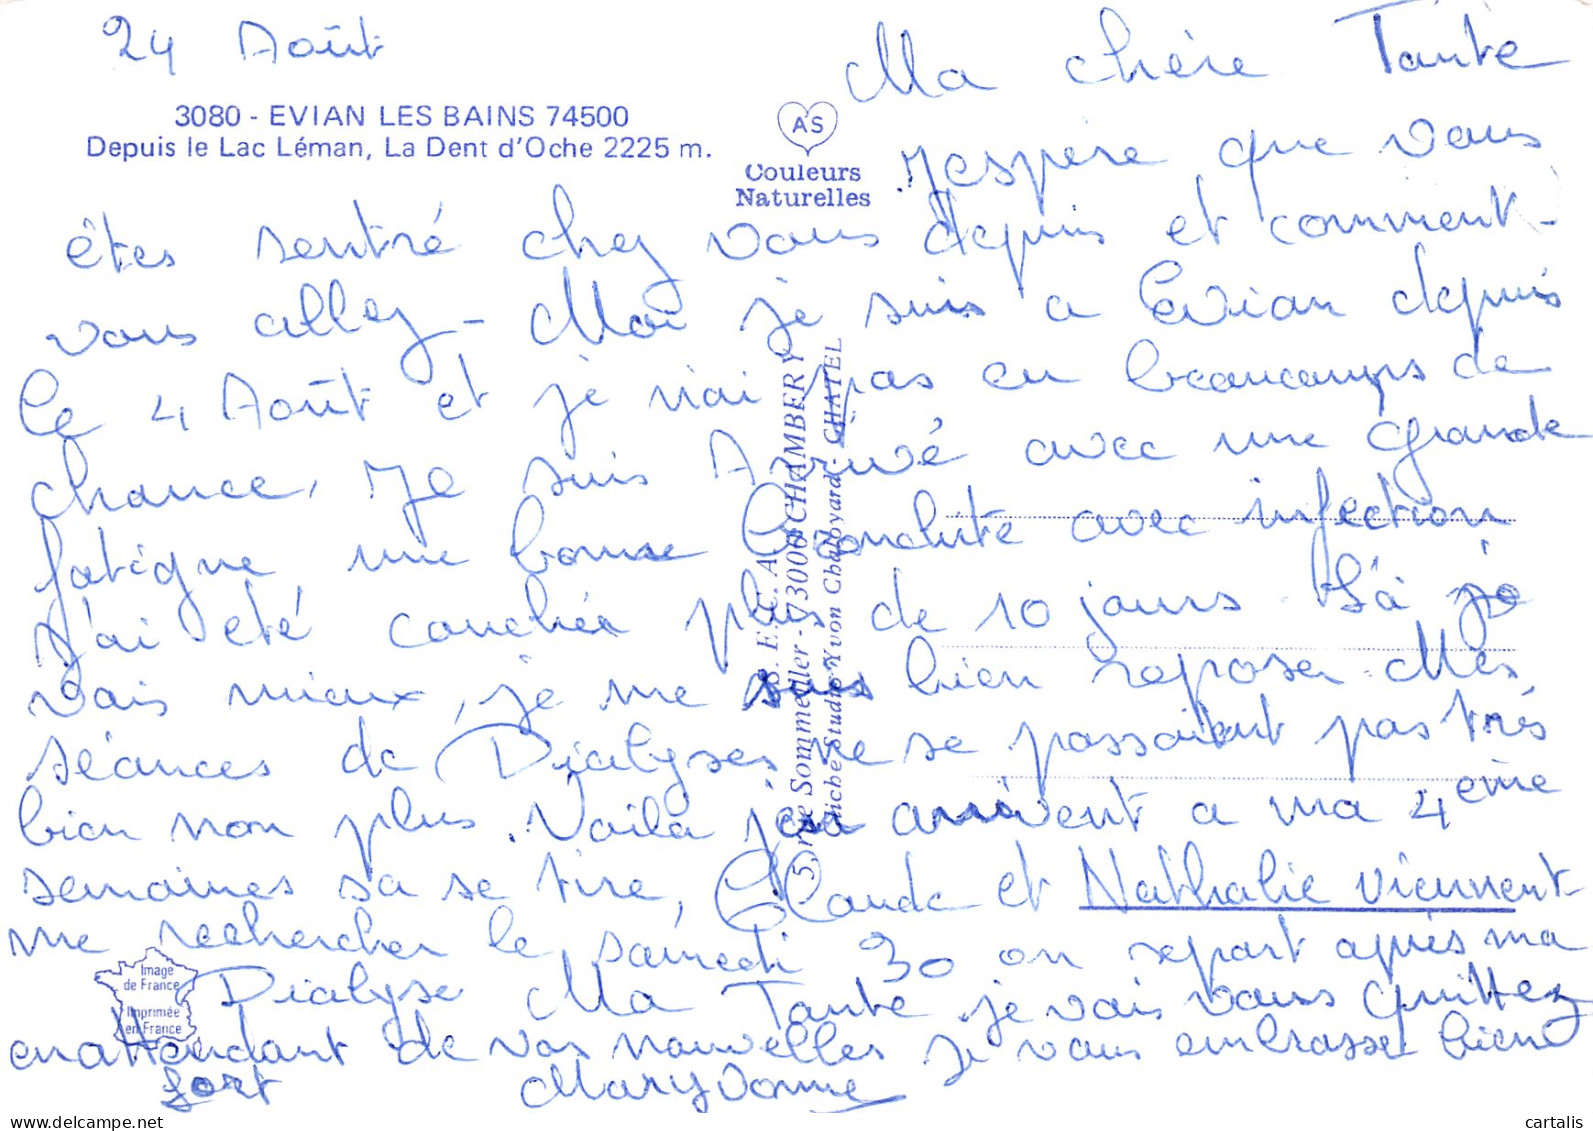 24 Août
Ma chère Tante
3080 - EVIAN LES BAINS 74500
Depuis le Lac Léman, La Dent d'Oche 2225 m.
AS
Couleurs
Naturelles
J'espère que vous
êtes rentré chez vous depuis et comment
vous allez - Moi je suis a Evian depuis
le 4 Août et je n'ai pas eu beaucoups de
chance, Je suis Arrivé avec une grande
fatigue une bonne bronchite avec infection
J'ai été couchér plus de 10 jours Là je
vais mieux, je me suis bien reposer. Mes
séances de Dialyses ne se passaient pas très
bien non plus. Voila j'en arrivent a ma 4ème
semaines sa se tire, Claude et Nathalie viennent
me rechercher le samedi 30 on repart après ma
Dialyse Ma Tante je vais vous quittez
en attendant de vos nouvelles je vous embrasse bien
fort Maryvonne
S.E.C.A.
5, rue Sommeiller - 73000 CHAMBERY
Cliché Studio Yvon Chatoyard - CHATEL
Image
de France
Imprimée
en France
www.delcampe.net
cartalis